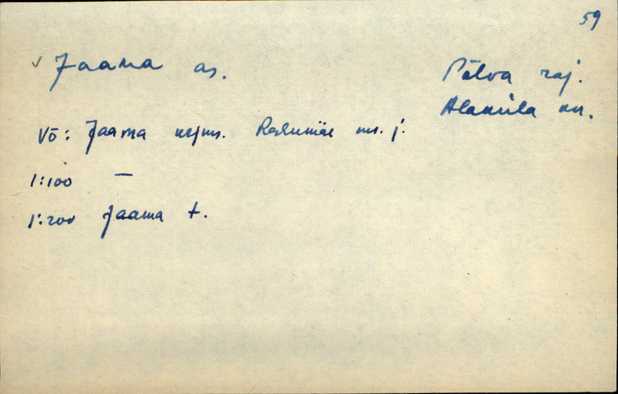 59
✓ Jaama as.
Põlva raj.
Alaküla kn.
Võ: Jaama krjms. ms. j.
1:100 —
1:200 Jaama t.